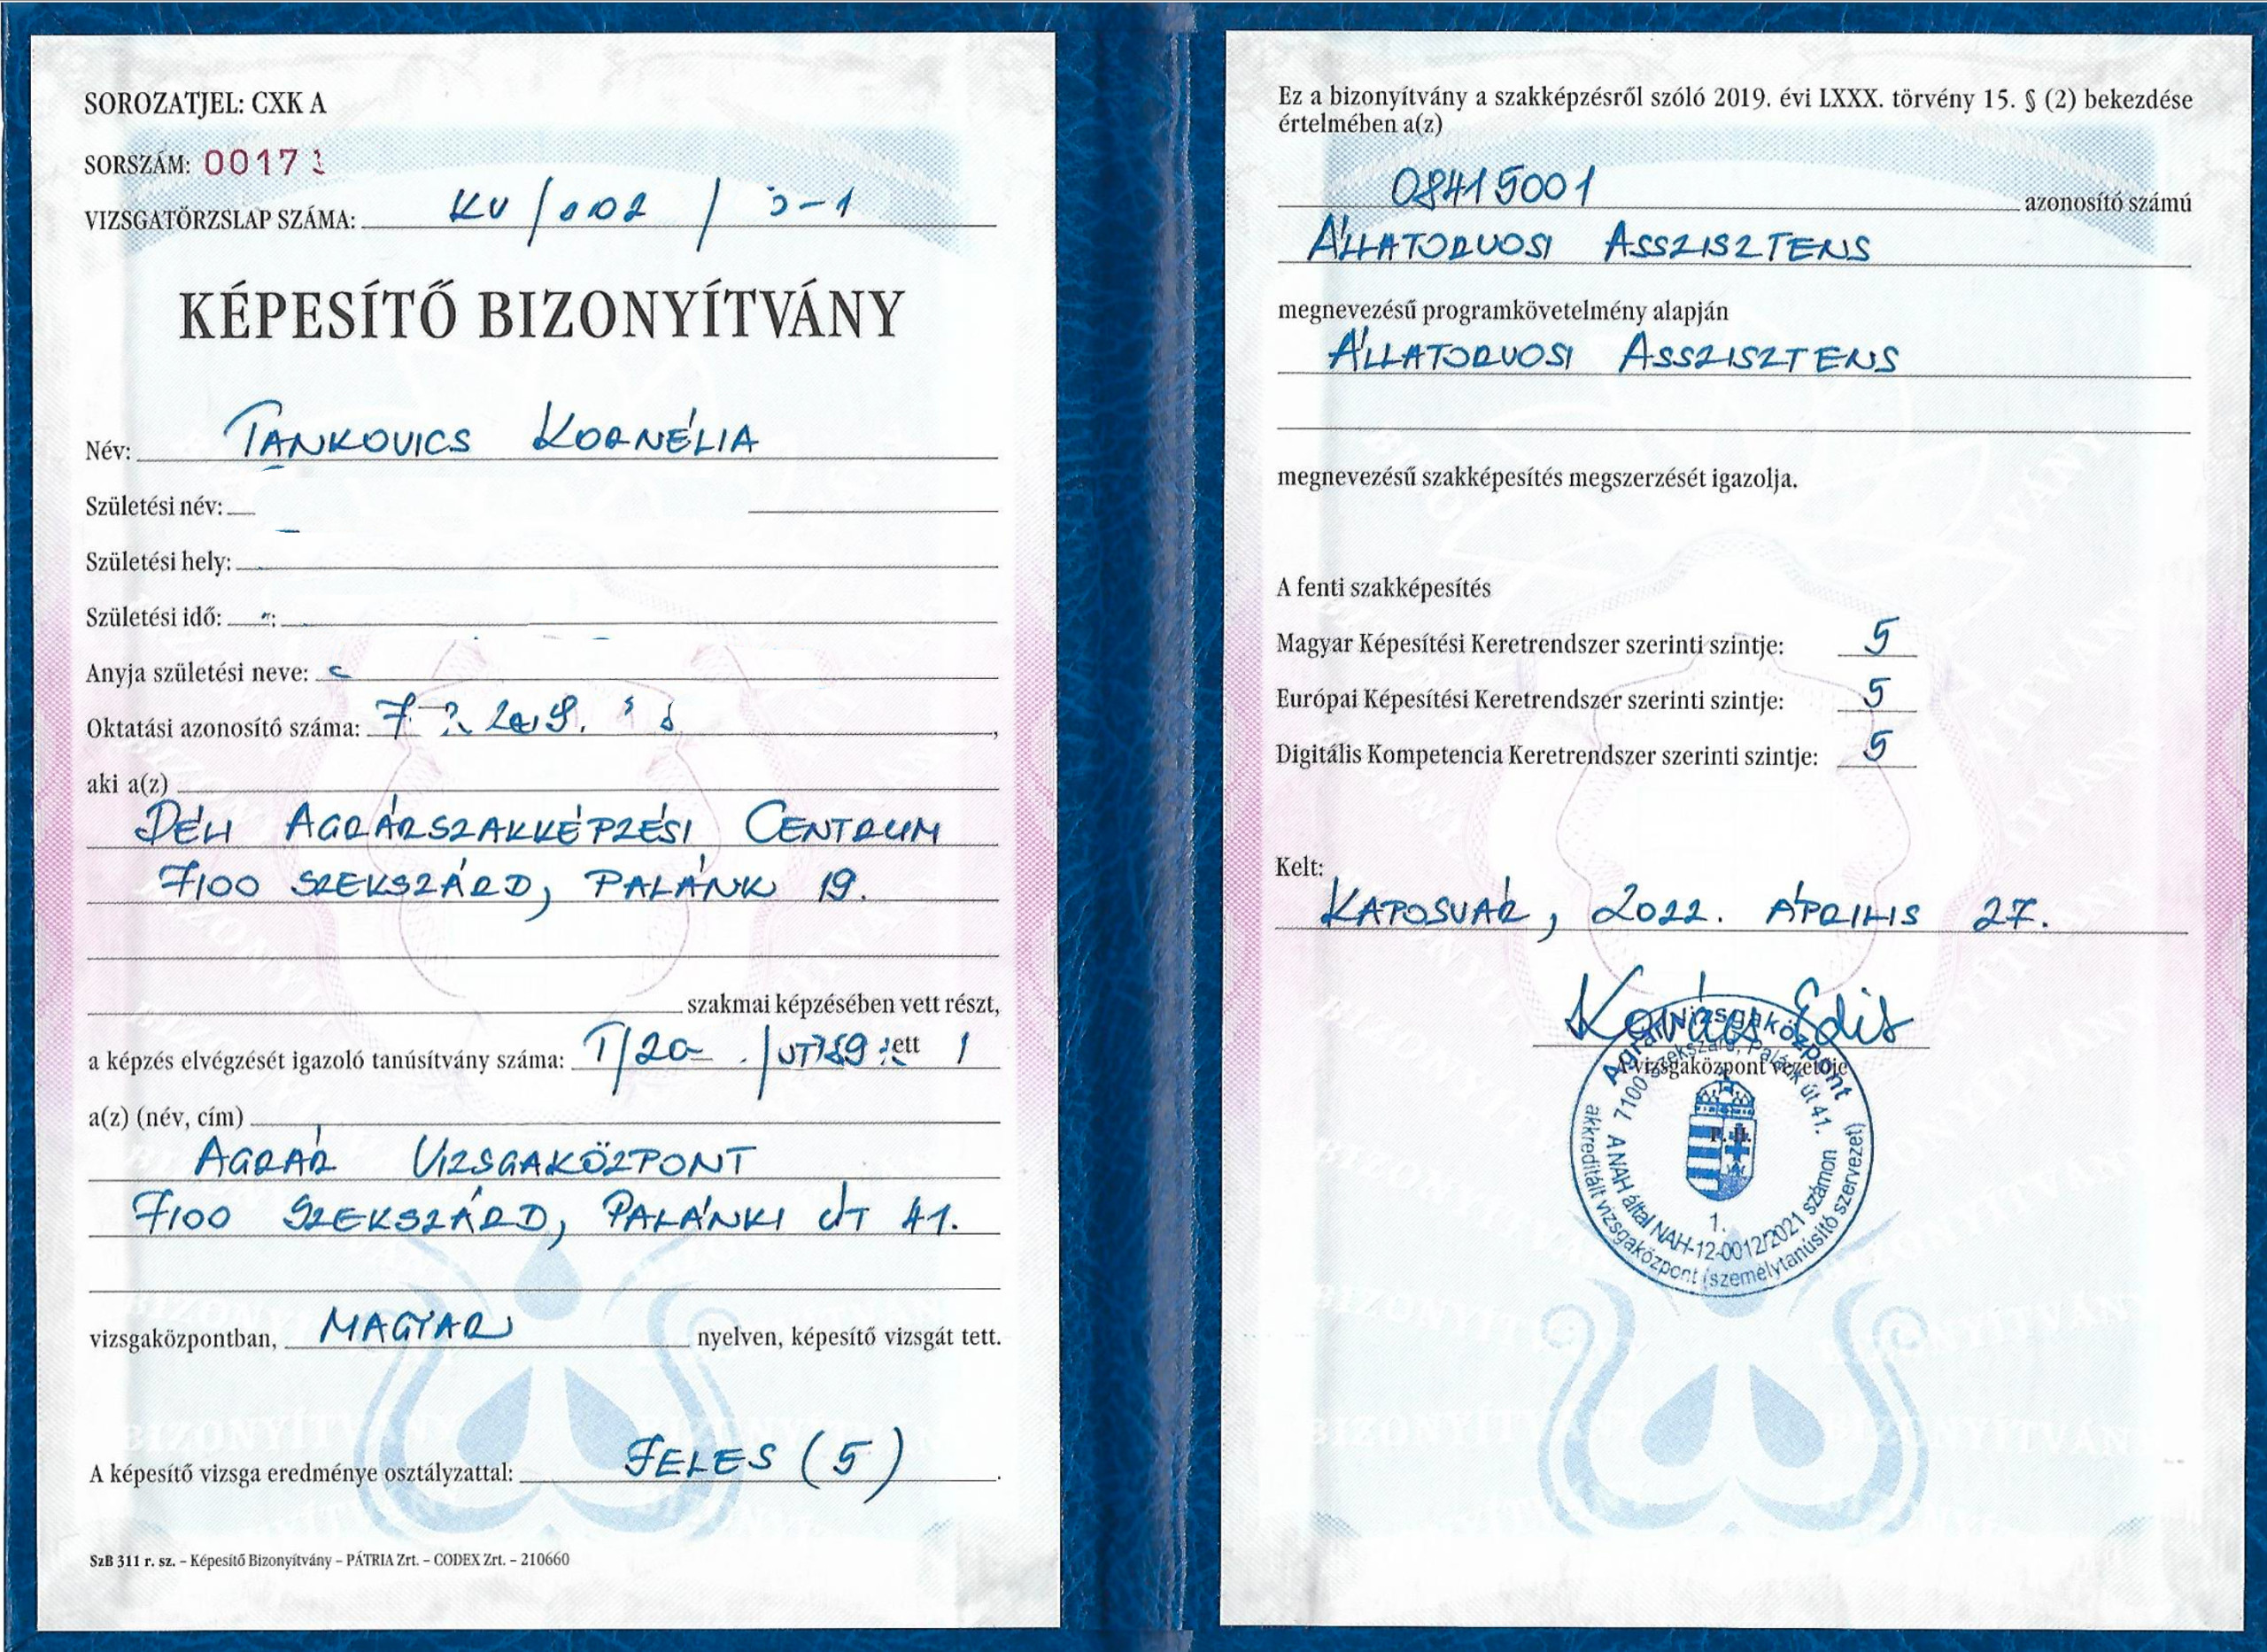 SOROZATJEL: CXK A
SORSZÁM: 0017
VIZSGATÖRZSLAP SZÁMA: KV/
KÉPESÍTŐ BIZONYÍTVÁNY
Név: TANKOVICS KORNÉLIA
Születési név:
Születési hely:
Születési idő:
Anyja születési neve:
Oktatási azonosító száma: 7
aki a(z)
DÉLI AGRÁRSZAKKÉPZÉSI CENTRUM
7100 SZEKSZÁRD, PALÁNK 19.
szakmai képzésében vett részt,
a képzés elvégzését igazoló tanúsítvány száma:
a(z) (név, cím)
AGRÁR VIZSGAKÖZPONT
7100 SZEKSZÁRD, PALÁNKI ÚT 41.
vizsgaközpontban, MAGYAR nyelven, képesítő vizsgát tett.
A képesítő vizsga eredménye osztályzattal: JELES (5).
SzB 311 r. sz. – Képesítő Bizonyítvány – PÁTRIA Zrt. – CODEX Zrt. – 210660
Ez a bizonyítvány a szakképzésről szóló 2019. évi LXXX. törvény 15. § (2) bekezdése
értelmében a(z)
08415001 azonosító számú
ÁLLATORVOSI ASSZISZTENS
megnevezésű programkövetelmény alapján
ÁLLATORVOSI ASSZISZTENS
megnevezésű szakképesítés megszerzését igazolja.
A fenti szakképesítés
Magyar Képesítési Keretrendszer szerinti szintje: 5
Európai Képesítési Keretrendszer szerinti szintje: 5
Digitális Kompetencia Keretrendszer szerinti szintje: 5
Kelt:
KAPOSVÁR, 2022. ÁPRILIS 27.
Kovács Edit
A vizsgaközpont vezetője
P. H.
Agrár Vizsgaközpont
7100 Szekszárd, Palánki út 41.
A NAH által NAH-12-0012/2021 számon
akkreditált vizsgaközpont (személytanúsító szervezet)
1.